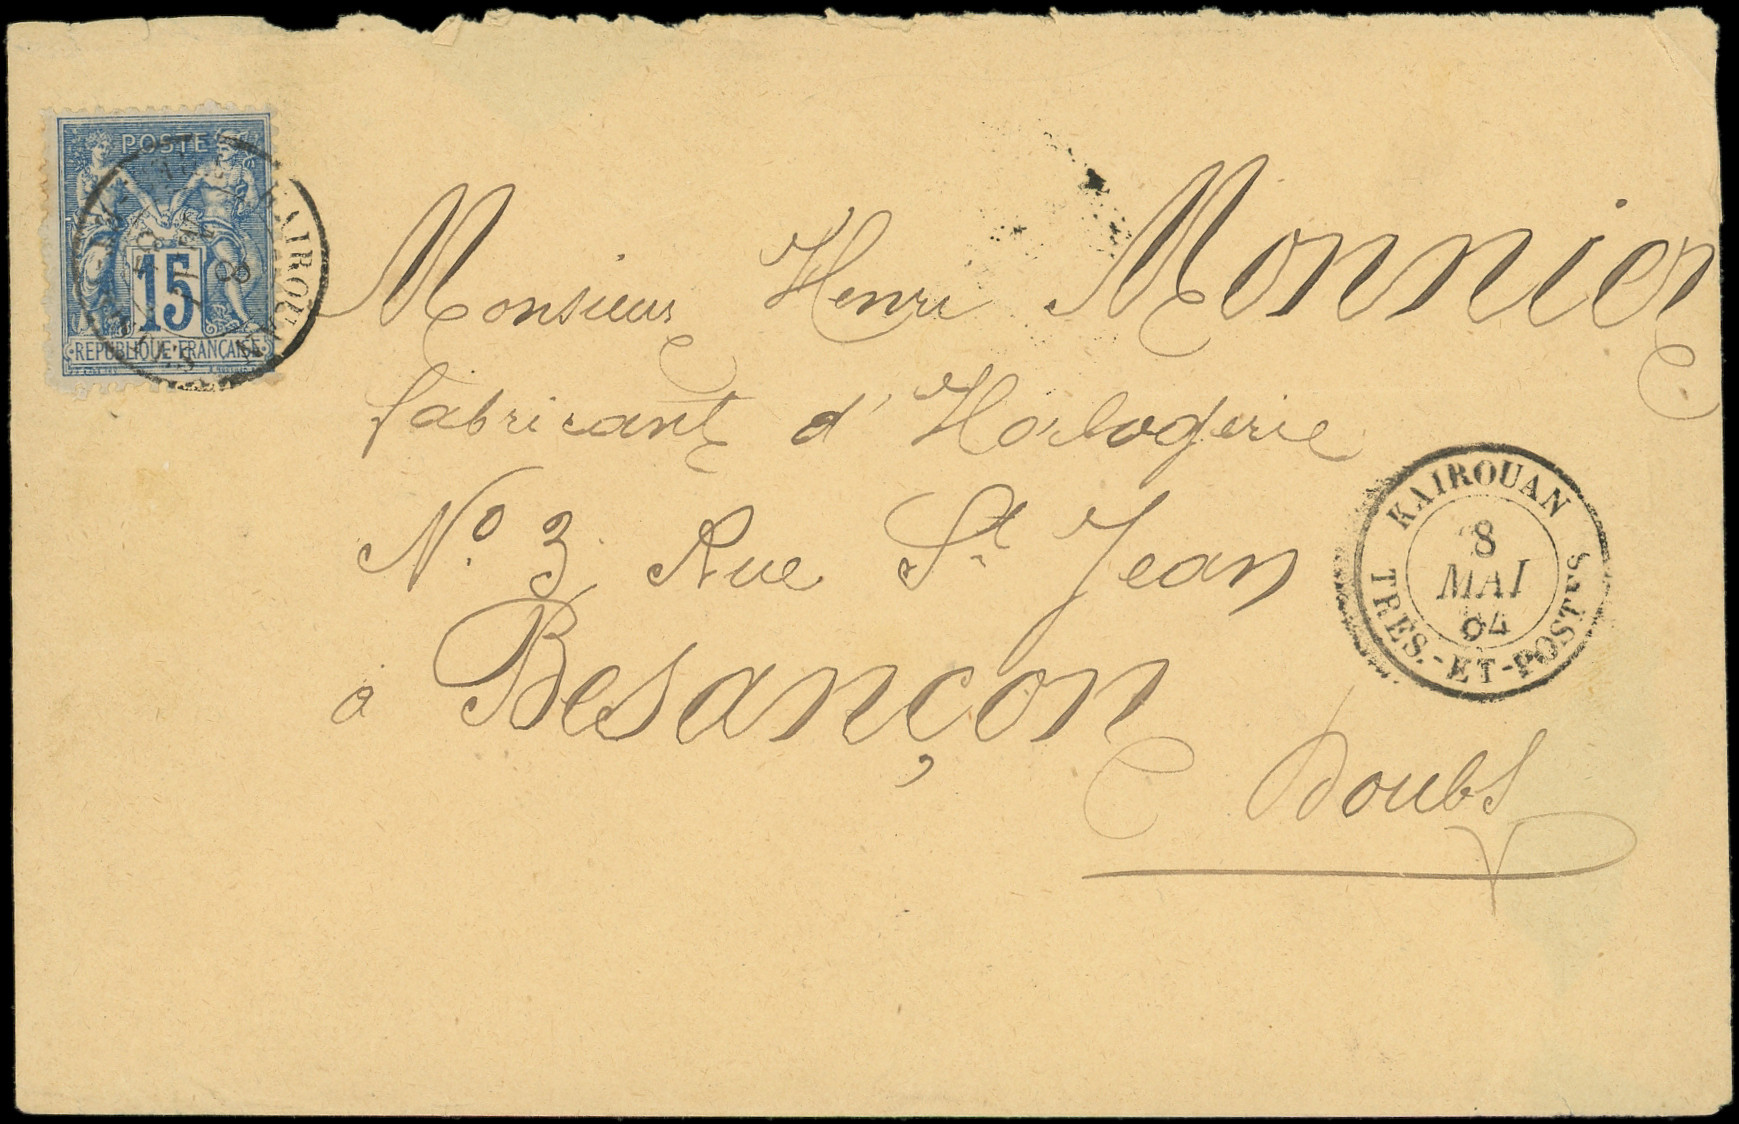 POSTE
15
REPUBLIQUE FRANÇAISE
KAIROUAN
Monsieur Henri Monnier
fabricant d'Horlogerie
No. 3 Rue St Jean
à Besançon
Doubs
KAIROUAN
8
MAI
84
TRES.-ET-POSTES